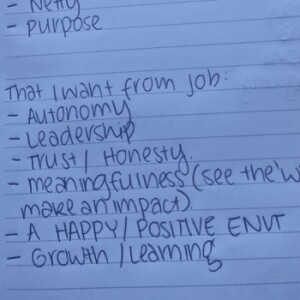 - Purpose
That I want from job:
- Autonomy
- Leadership
- Trust / Honesty.
- meaningfulness (see the 'w
make an impact)
- A HAPPY / POSITIVE ENVT
- Growth / Learning